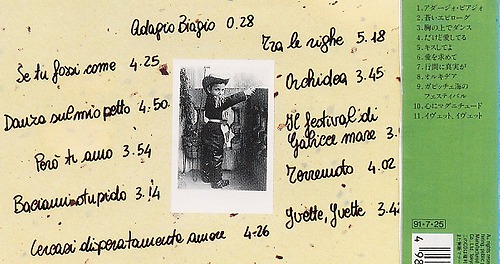 Adagio Biagio 0.28
Se tu fossi come 4.25
Danza sul mio petto 4.50
Però ti amo 3.54
Baciami stupido 3.14
Cercasi disperatamente amore 4.26
Tra le righe 5.18
Orchidea 3.45
Il festival di
Gabicce mare 3.
Terremoto 4.02
Yvette, Yvette 3.42
1.アダージョ・ビアジォ
2.蒼いエピローグ
3.胸の上でダンス
4.だけど愛してる
5.キスしてよ
6.愛を求めて
7.行間に真実が
8.オルキデア
9.ガビッチェ海の
フェスティバル
10.心にマグニチュード
11.イヴェット、イヴェット
91・7・25
4 98